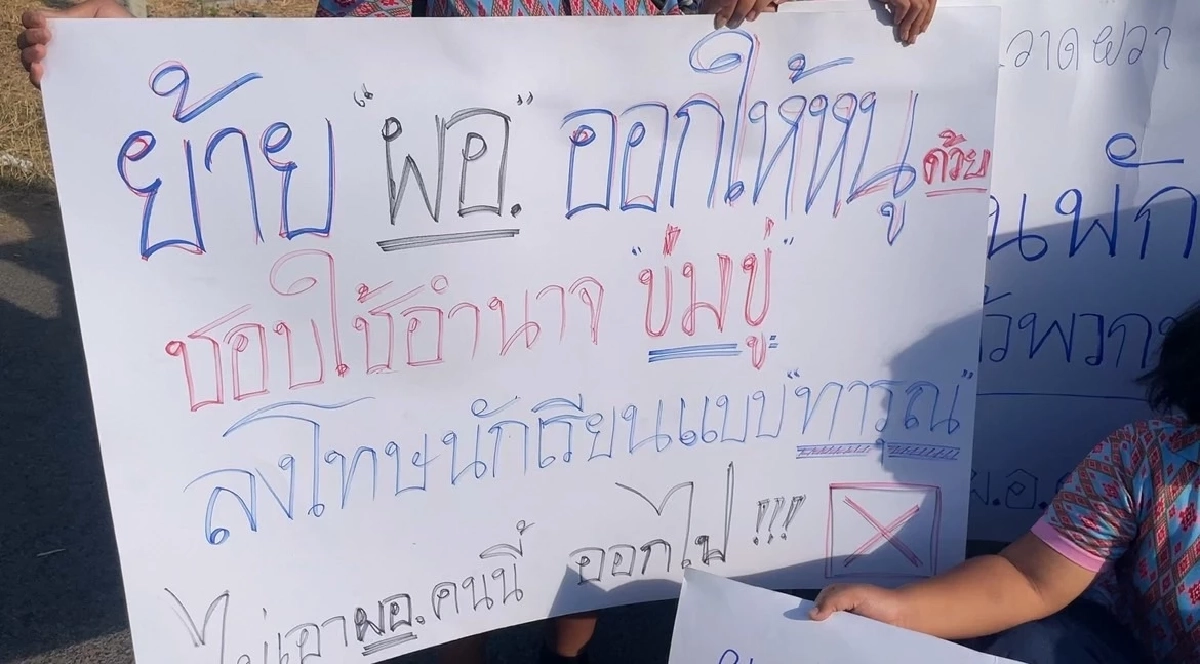 ย้าย "ผอ." ออกให้หนูด้วย
ชอบใช้อำนาจ "ข่มขู่"
ลงโทษนักเรียนแบบ "ทารุณ"
ไม่เอาผอ.คนนี้ ออกไป !!!
วาดผวา